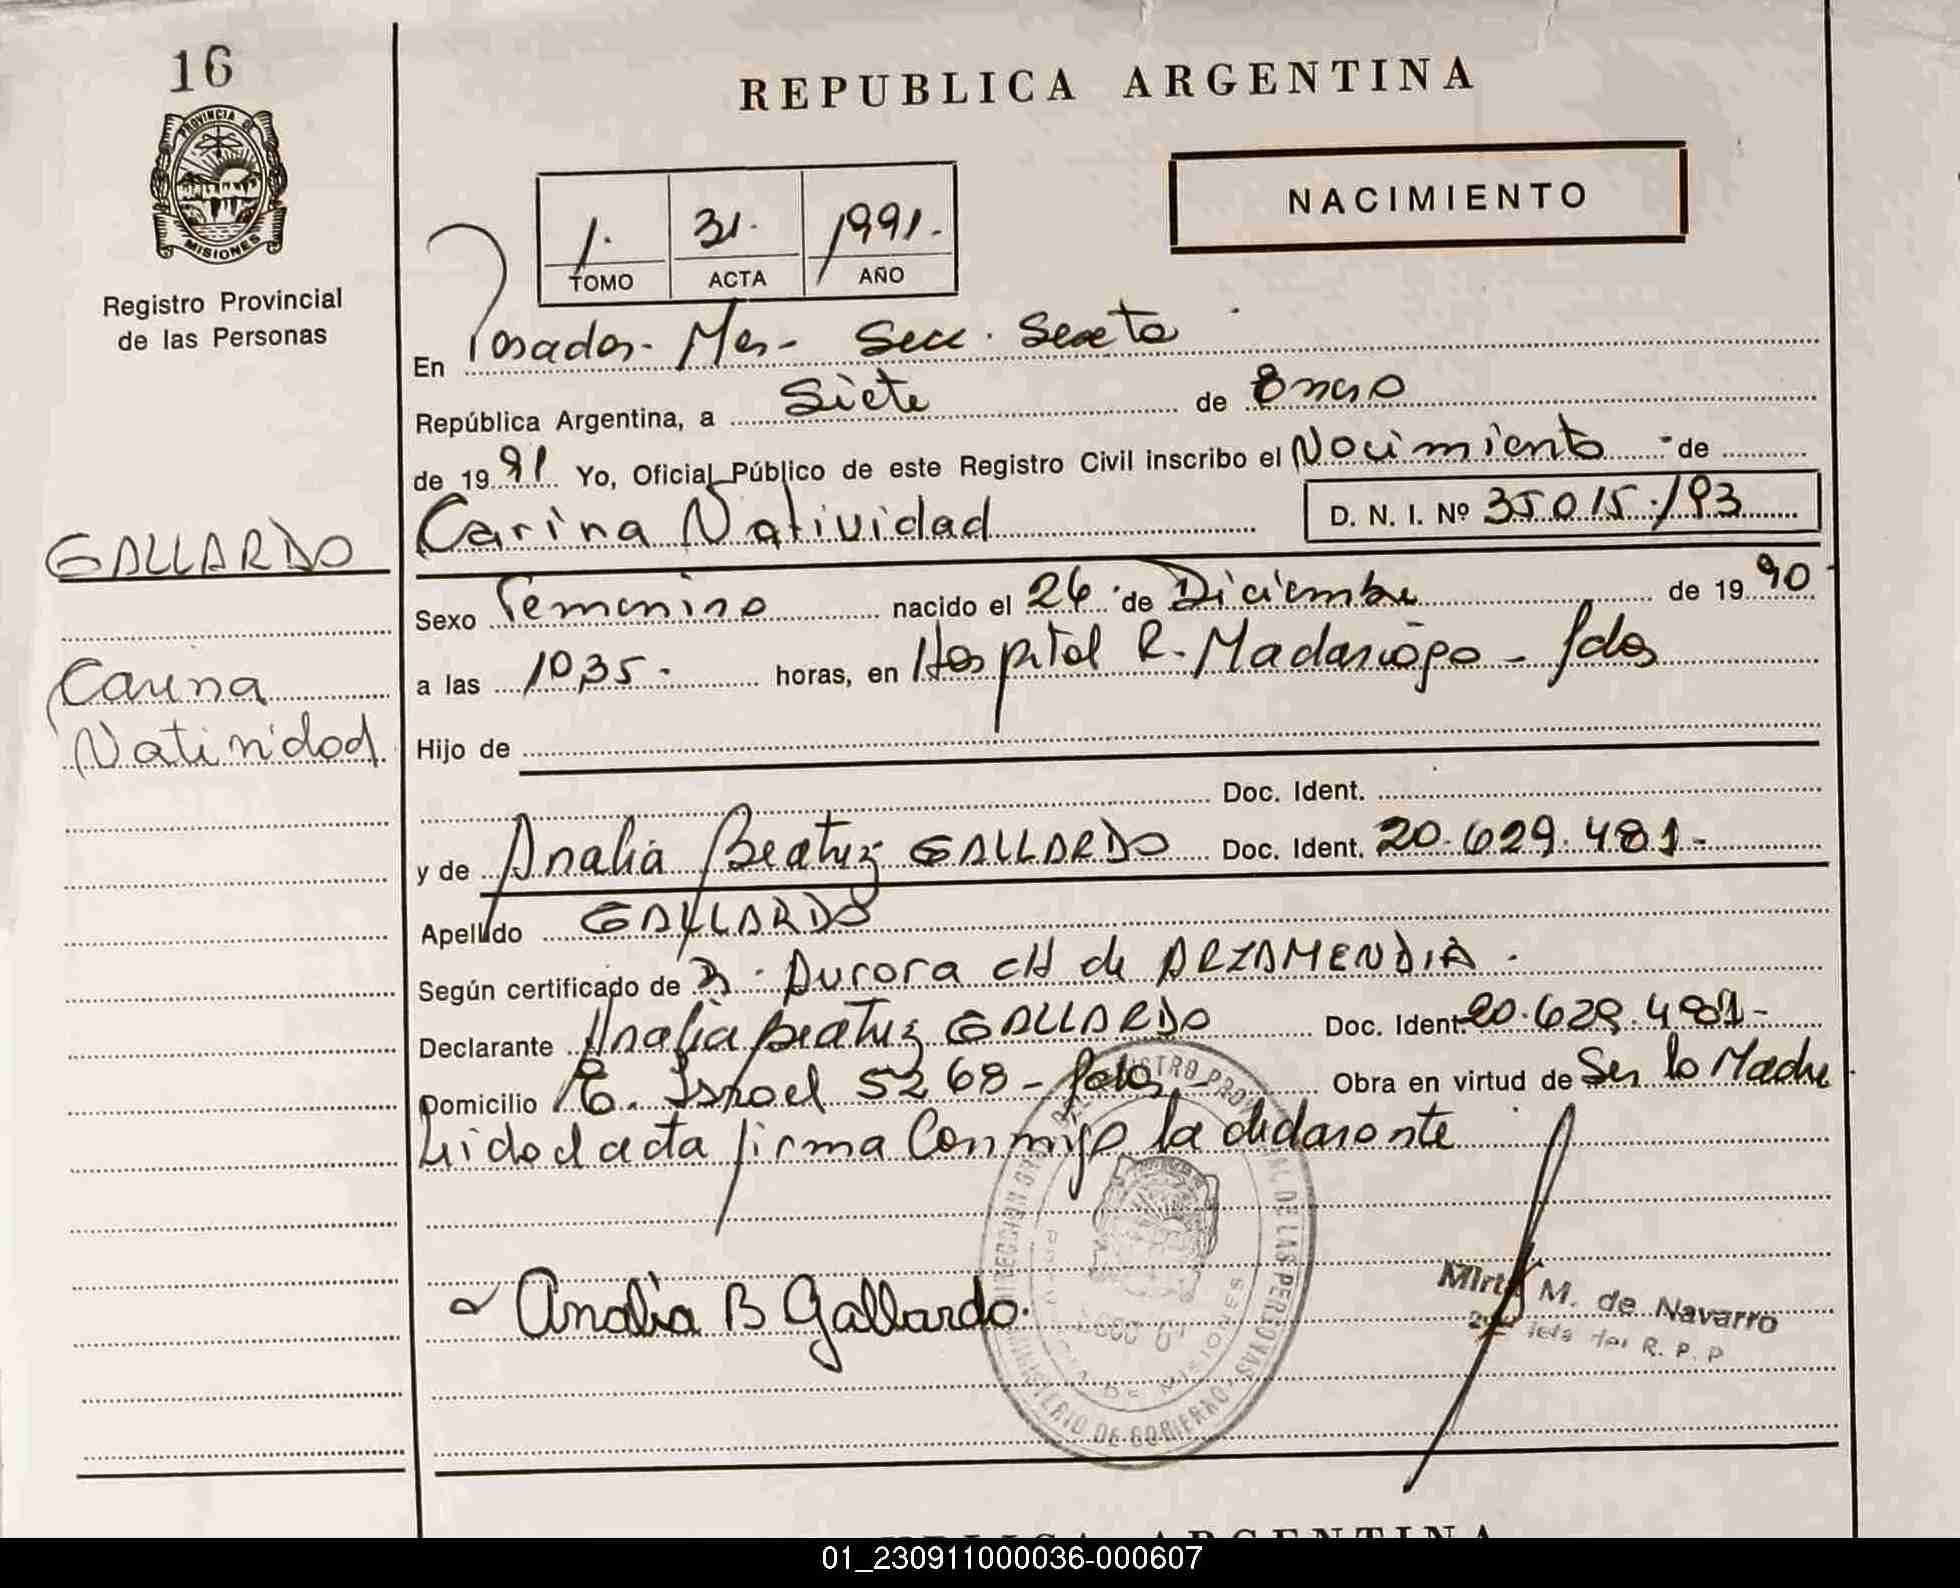 16
PROVINCIA DE
MISIONES
Registro Provincial
de las Personas
GALLARDO
Carina
Natividad
REPUBLICA ARGENTINA
NACIMIENTO
1. 31. 1991.
TOMO ACTA AÑO
En Posadas - Mes - Secc. Sexta
República Argentina, a Siete de Enero
de 1991 Yo, Oficial Público de este Registro Civil inscribo el Nacimiento de
Carina Natividad D. N. I. Nº 35.015.193
Sexo Femenino nacido el 26 de Diciembre de 1990
a las 10,35 - horas, en Hospital R. Madariaga - Pdas
Hijo de
Doc. Ident.
y de Analia Beatriz GALLARDO Doc. Ident. 20.629.481-
Apellido GALLARDO
Según certificado de D. Aurora CH de ARZAMENDIA.
Declarante Analia Beatriz GALLARDO Doc. Ident 20.629.481-
Domicilio Israel 5268 - Pdas Obra en virtud de Ser la Madre
Leida el acta firma Conmigo la declarante
Analia B Gallardo.
Mirta M. de Navarro
R. P. P
DIRECCION REGISTRO PROVINCIAL DE LAS PERSONAS
MINISTERIO DE GOBIERNO
DE MISIONES
REPUBLICA ARGENTINA
01_230911000036-000607